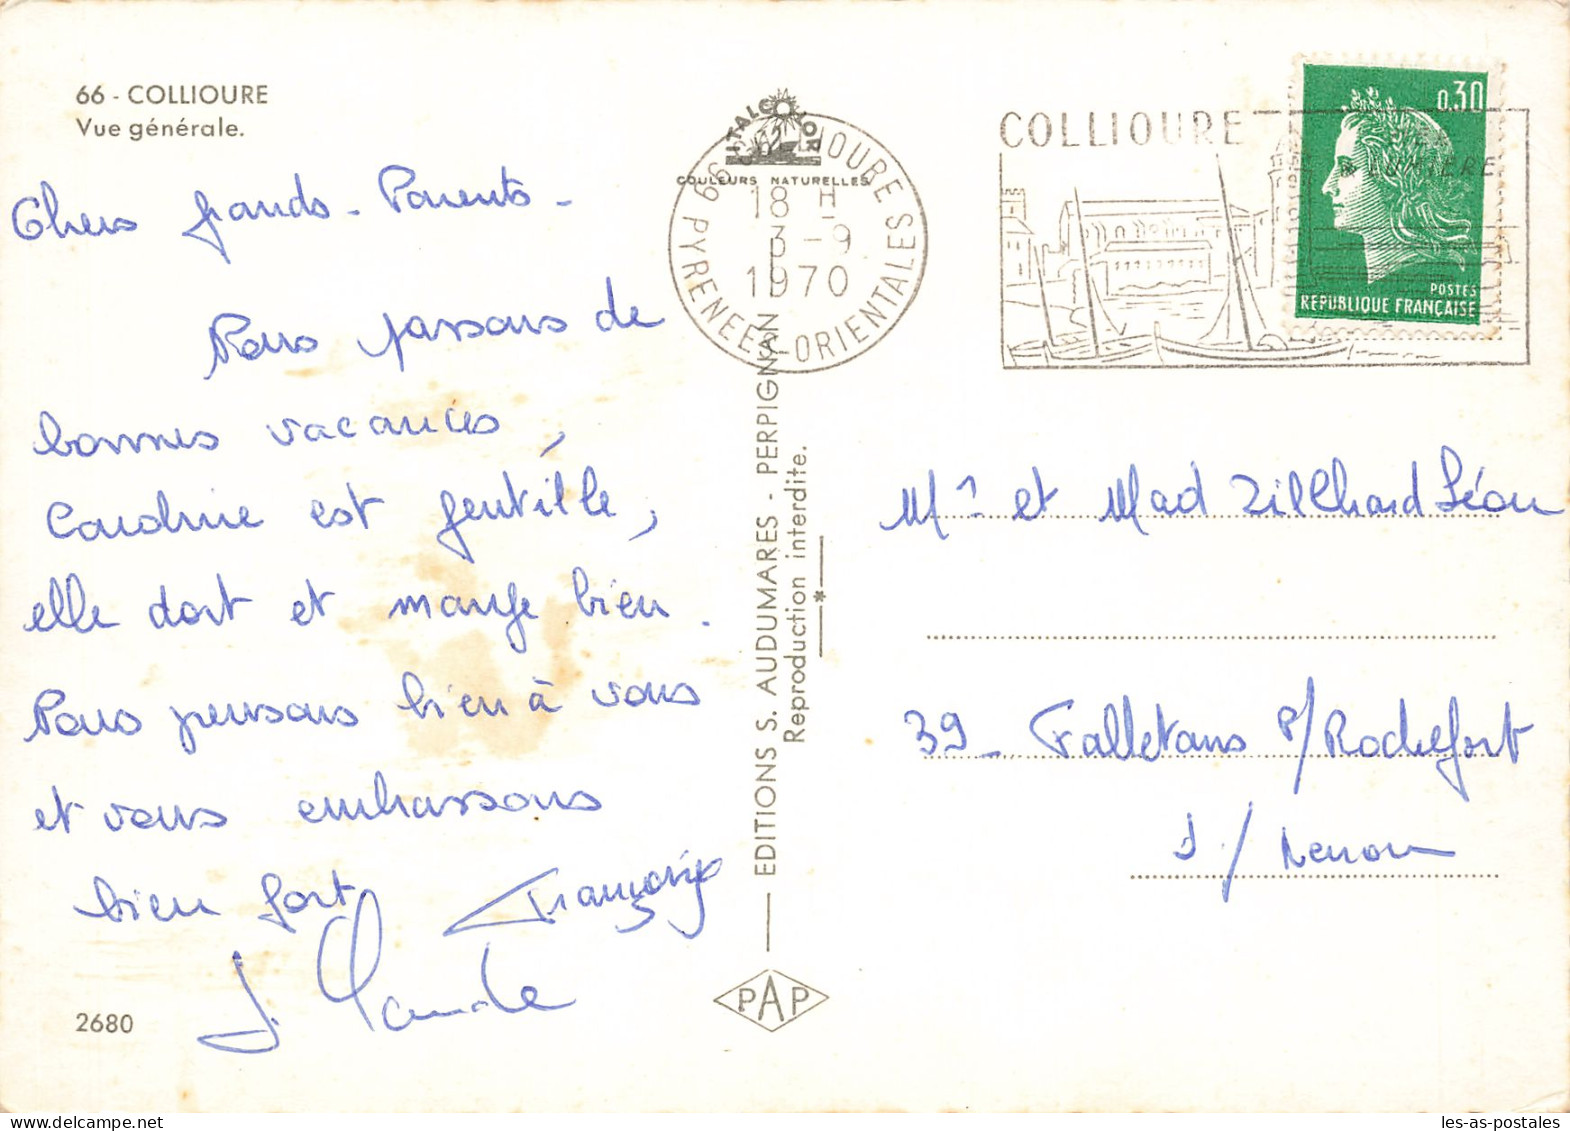 66 - COLLIOURE
Vue générale.
Chers grands-Parents -
Nous passons de
bonnes vacances,
Sandrine est gentille,
elle dort et mange bien.
Nous pensons bien à vous
et vous embrassons
bien fort
Françoise
J. Claude
2680
ITALCOLOR
COULEURS NATURELLES
66 COLLIOURE
18 H
3 - 9
1970
PYRENEES-ORIENTALES
EDITIONS S. AUDUMARES - PERPIGNAN
Reproduction interdite.
PAP
COLLIOURE
LUMIERE
0,30
POSTES
REPUBLIQUE FRANÇAISE
Mr et Mad Zilchard Léon
39 - Falletans P/Rochefort
S/Nenon
les-as-postales